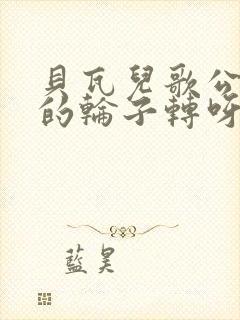 貝瓦兒歌公
的輪子轉呀
藍昊